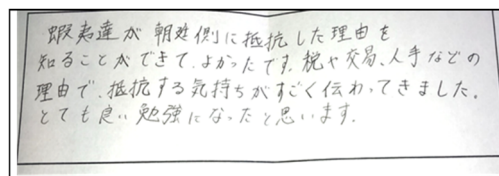 蝦夷達が朝廷側に抵抗した理由を
知ることができて、よかったです。税や交易、人手などの
理由で、抵抗する気持ちがすごく伝わってきました。
とても良い勉強になったと思います。